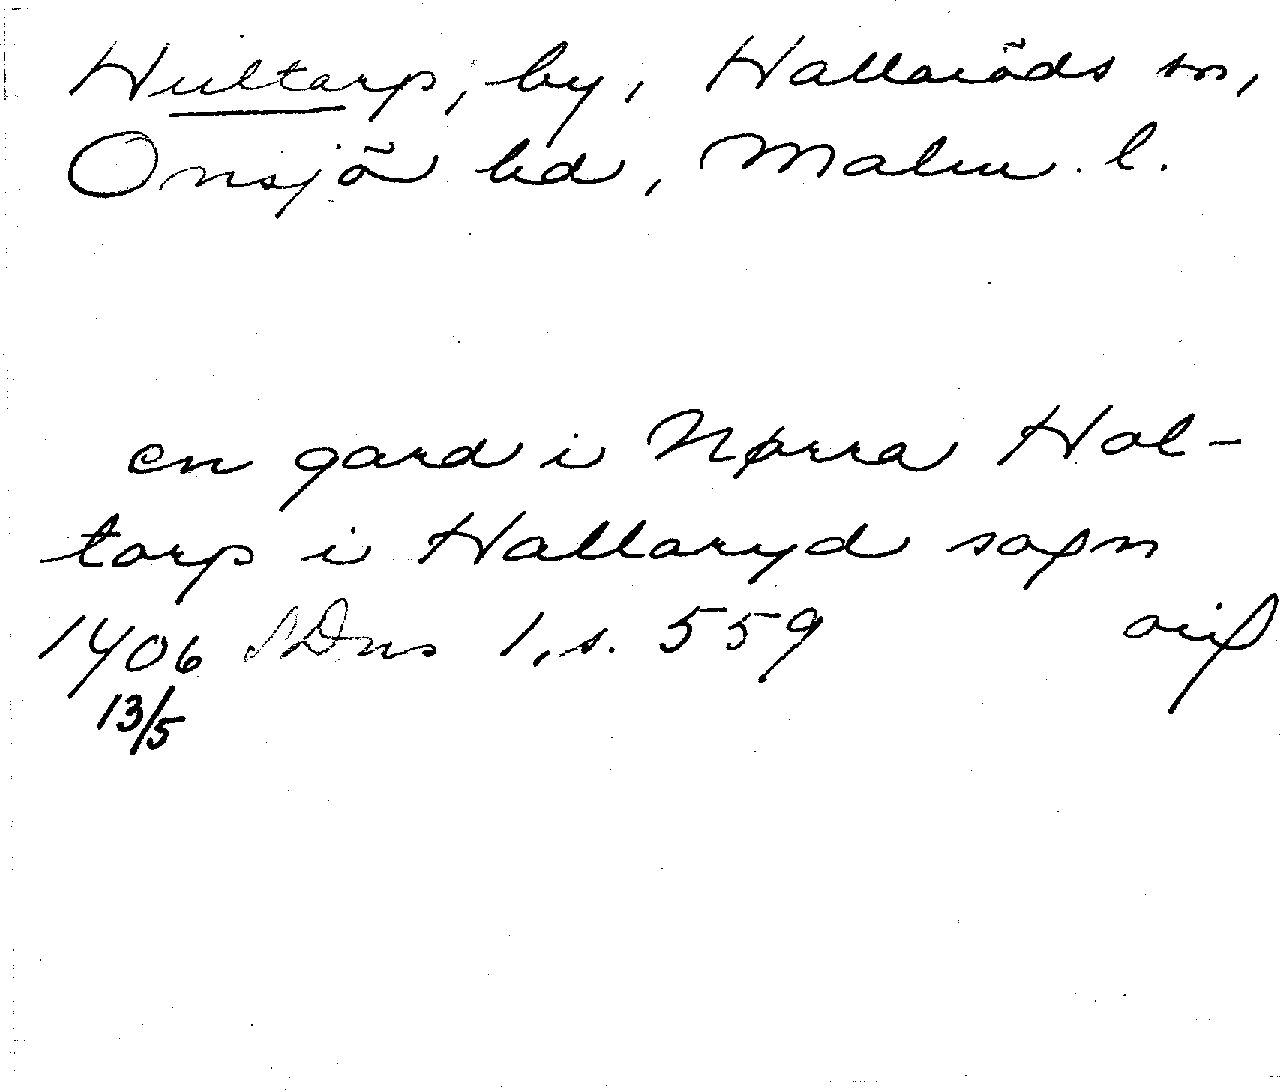 Hultarp, by, Hallaröds sn,
Onsjö hd, Malm. l.
en gard i Nørra Hol-
torp i Hallaryd sogn
1406 SDns 1, s. 559 oris
13/5